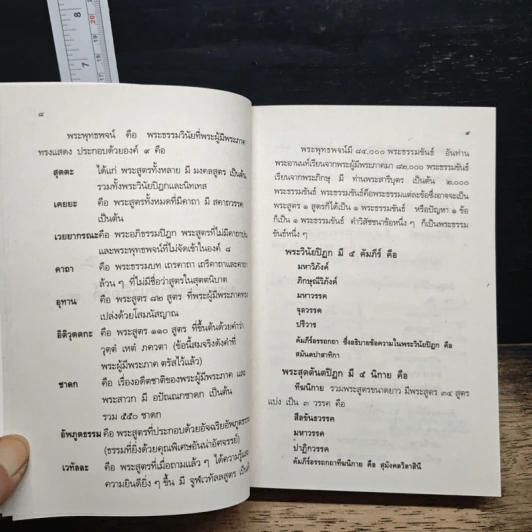 ๘
พระพุทธพจน์ คือ พระธรรมวินัยที่พระผู้มีพระภาค
ทรงแสดง ประกอบด้วยองค์ ๙ คือ
สุตตะ ได้แก่ พระสูตรทั้งหลาย มี มงคลสูตร เป็นต้น
รวมทั้งพระวินัยปิฎกและนิทเทส
เคยยะ คือ พระสูตรทั้งหมดที่มีคาถา มี สคาถวรรค
เป็นต้น
เวยยากรณะ คือ พระอภิธรรมปิฎก พระสูตรที่ไม่มีคาถาปน
และพระพุทธพจน์ที่ไม่จัดเข้าในองค์ ๘
คาถา คือ พระธรรมบท เถรคาถา เถรีคาถาและคาถา
ล้วน ๆ ที่ไม่มีชื่อว่าสูตรในสุตตนิบาต
อุทาน คือ พระสูตร ๘๒ สูตร ที่พระผู้มีพระภาคทรง
เปล่งด้วยโสมนัสญาณ
อิติวุตตกะ คือ พระสูตร ๑๑๐ สูตร ที่ขึ้นต้นด้วยคำว่า
วุตฺตํ เหตํ ภควตา (ข้อนี้สมจริงดังคำที่
พระผู้มีพระภาค ตรัสไว้แล้ว)
ชาดก คือ เรื่องอดีตชาติของพระผู้มีพระภาค และ
พระสาวก มี อปัณณกชาดก เป็นต้น
รวม ๕๕๐ ชาดก
อัพภูตธรรม คือ พระสูตรที่ประกอบด้วยอัจฉริยอัพภูตธรรม
(ธรรมที่ยิ่งด้วยคุณพิเศษอันน่าอัศจรรย์)
เวทัลละ คือ พระสูตรที่เมื่อถามแล้ว ๆ ได้ความรู้และ
ความยินดียิ่ง ๆ ขึ้น มี จูฬเวทัลลสูตร เป็นต้น
๙
พระพุทธพจน์มี ๘๔,๐๐๐ พระธรรมขันธ์ อันท่าน
พระอานนท์เรียนจากพระผู้มีพระภาคมา ๘๒,๐๐๐ พระธรรมขันธ์
เรียนจากพระภิกษุ มี ท่านพระสารีบุตร เป็นต้น ๒,๐๐๐
พระธรรมขันธ์ พระธรรมขันธ์คือพระธรรมแต่ละข้อซึ่งอาจจะเป็น
พระสูตร ๑ สูตรก็ได้เป็น ๑ พระธรรมขันธ์ หรือปัญหา ๑ ข้อ
ก็เป็น ๑ พระธรรมขันธ์ คำวิสัชชนาข้อหนึ่ง ๆ ก็เป็นพระธรรม
ขันธ์หนึ่ง ๆ
พระวินัยปิฎก มี ๕ คัมภีร์ คือ
มหาวิภังค์
ภิกษุณีวิภังค์
มหาวรรค
จุลวรรค
ปริวาร
คัมภีร์อรรถกถา ซึ่งอธิบายข้อความในพระวินัยปิฎก คือ
สมันตปาสาทิกา
พระสุตตันตปิฎก มี ๕ นิกาย คือ
ทีฆนิกาย รวมพระสูตรขนาดยาว มีพระสูตร ๓๔ สูตร
แบ่ง เป็น ๓ วรรค คือ
สีลขันธวรรค
มหาวรรค
ปาฏิกวรรค
คัมภีร์อรรถกถาทีฆนิกาย คือ สุมังคลวิลาสินี